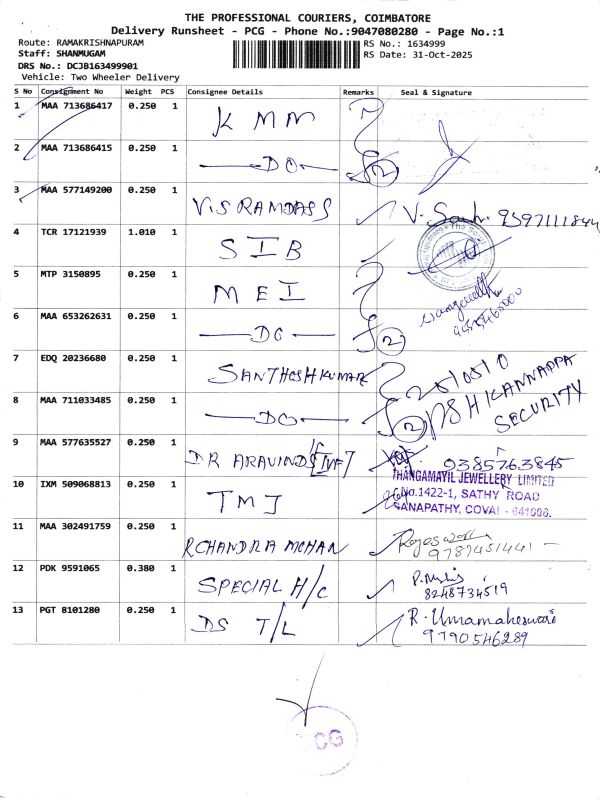 THE PROFESSIONAL COURIERS, COIMBATORE
Delivery Runsheet - PCG - Phone No.:9047080280 - Page No.:1
Route: RAMAKRISHNAPURAM
RS No.: 1634999
Staff: SHANMUGAM
RS Date: 31-Oct-2025
DRS No.: DCJB163499901
Vehicle: Two Wheeler Delivery
S No Consignment No Weight PCS Consignee Details Remarks Seal & Signature
1 MAA 713686417 0.250 1 K M M
2 MAA 713686415 0.250 1 —DO— 2
3 MAA 577149200 0.250 1 V.S RAMDASS V. 9597111844
4 TCR 17121939 1.010 1 S I B
5 MTP 3150895 0.250 1 M E I
6 MAA 653262631 0.250 1 —DO— 2
7 EDQ 20236680 0.250 1 SANTHOSH KUMAR
8 MAA 711033485 0.250 1 —DO— 2 KANNAPPA
SECURITY
9 MAA 577635527 0.250 1 DR ARAVINDS [IVF] 9385763845
10 IXM 509068813 0.250 1 T M J
THANGAMAYIL JEWELLERY LIMITED
No.1422-1, SATHY ROAD
GANAPATHY, COVAI - 641006.
11 MAA 302491759 0.250 1 R CHANDRA MOHAN 9787451441
12 PDK 9591065 0.380 1 SPECIAL H/C 8248734519
13 PGT 8101280 0.250 1 DS T/L R. Umamaheswari
9790546289
PCG